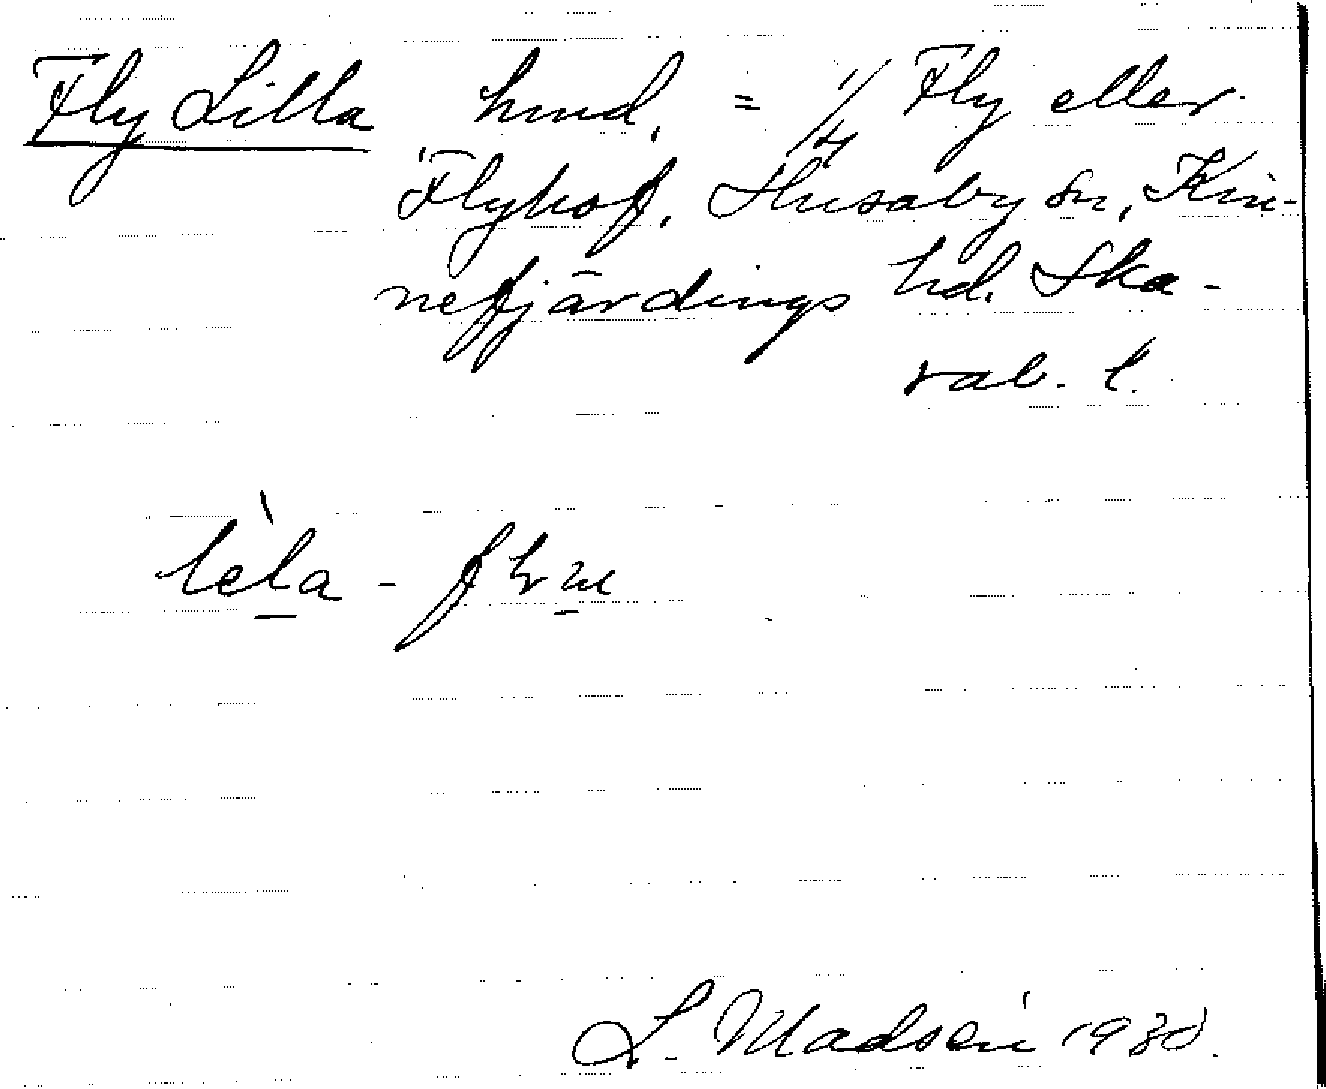 Fly Lilla hmd. = 1/4 Fly eller
Flyhof, Husaby sn, Kin-
nefjärdings hd. Ska-
rab. l.
L. Madsén 1930.